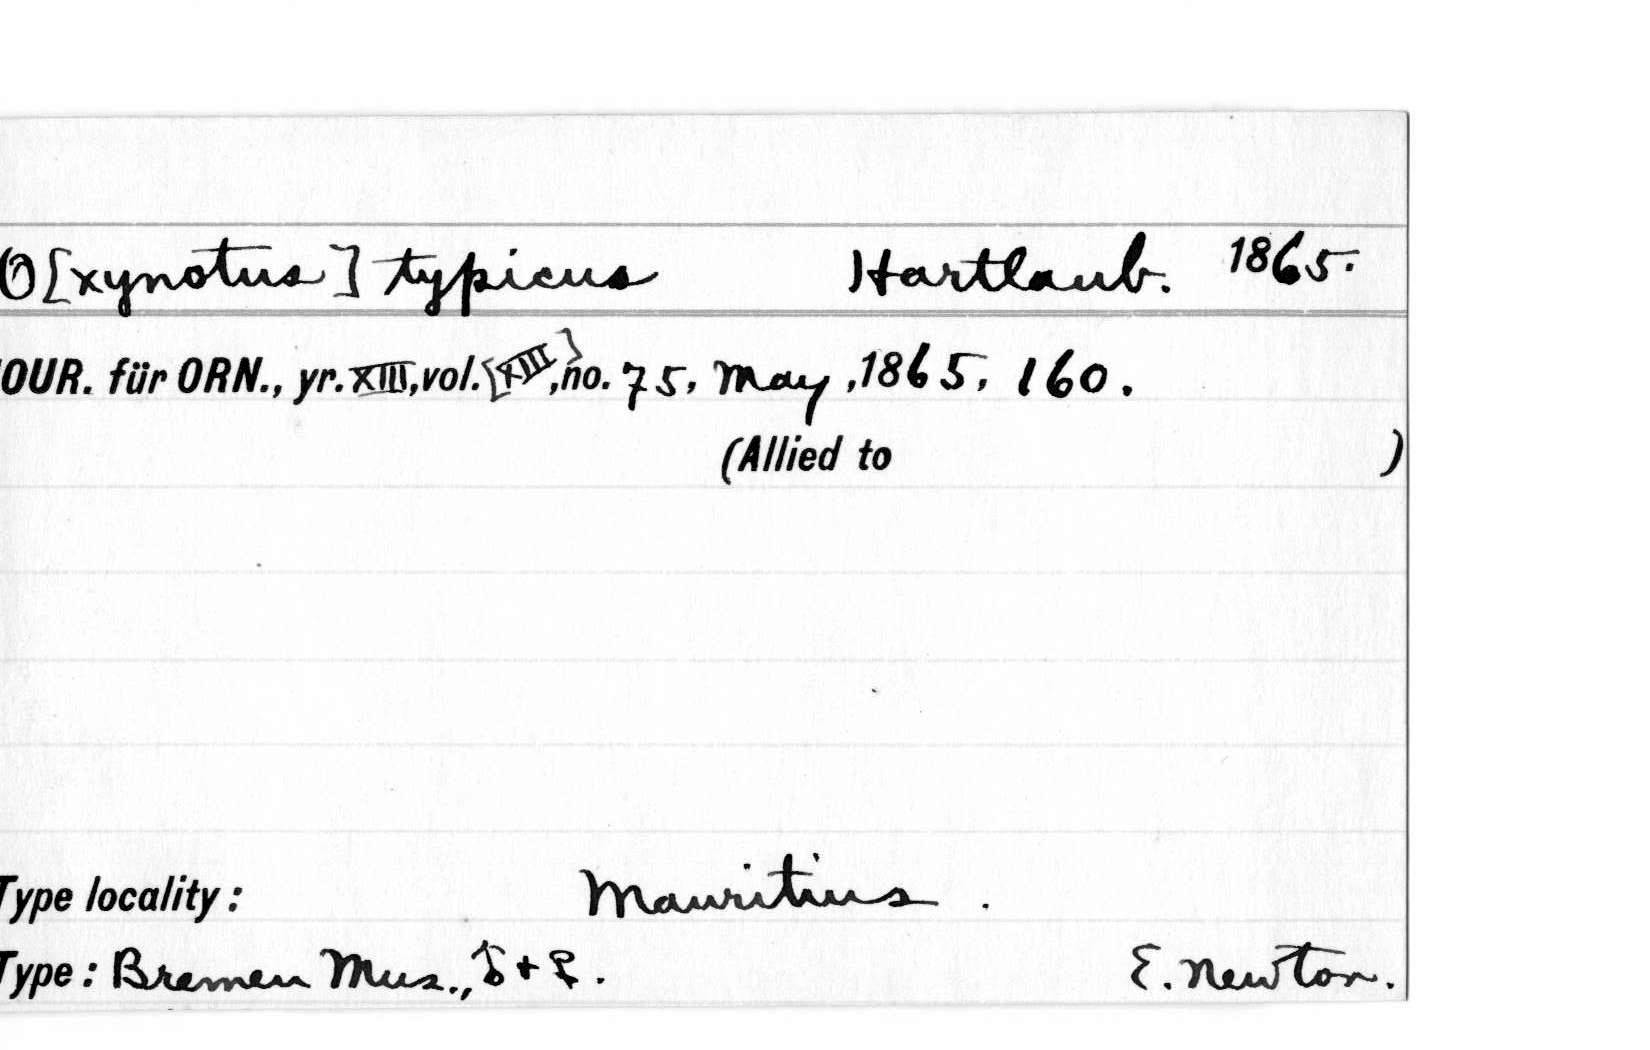 O[xynotus] typicus Hartlaub. 1865.
OUR. für ORN., yr. XIII, vol. [XIII], no. 75, May, 1865, 160.
(Allied to )
Type locality: Mauritius.
Type: Bremen Mus., ♂ + ♀. E. Newton.